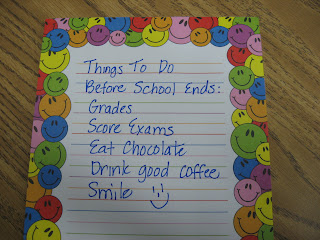 Things To Do
Before School Ends:
Grades
Score Exams
Eat Chocolate
Drink good coffee
Smile